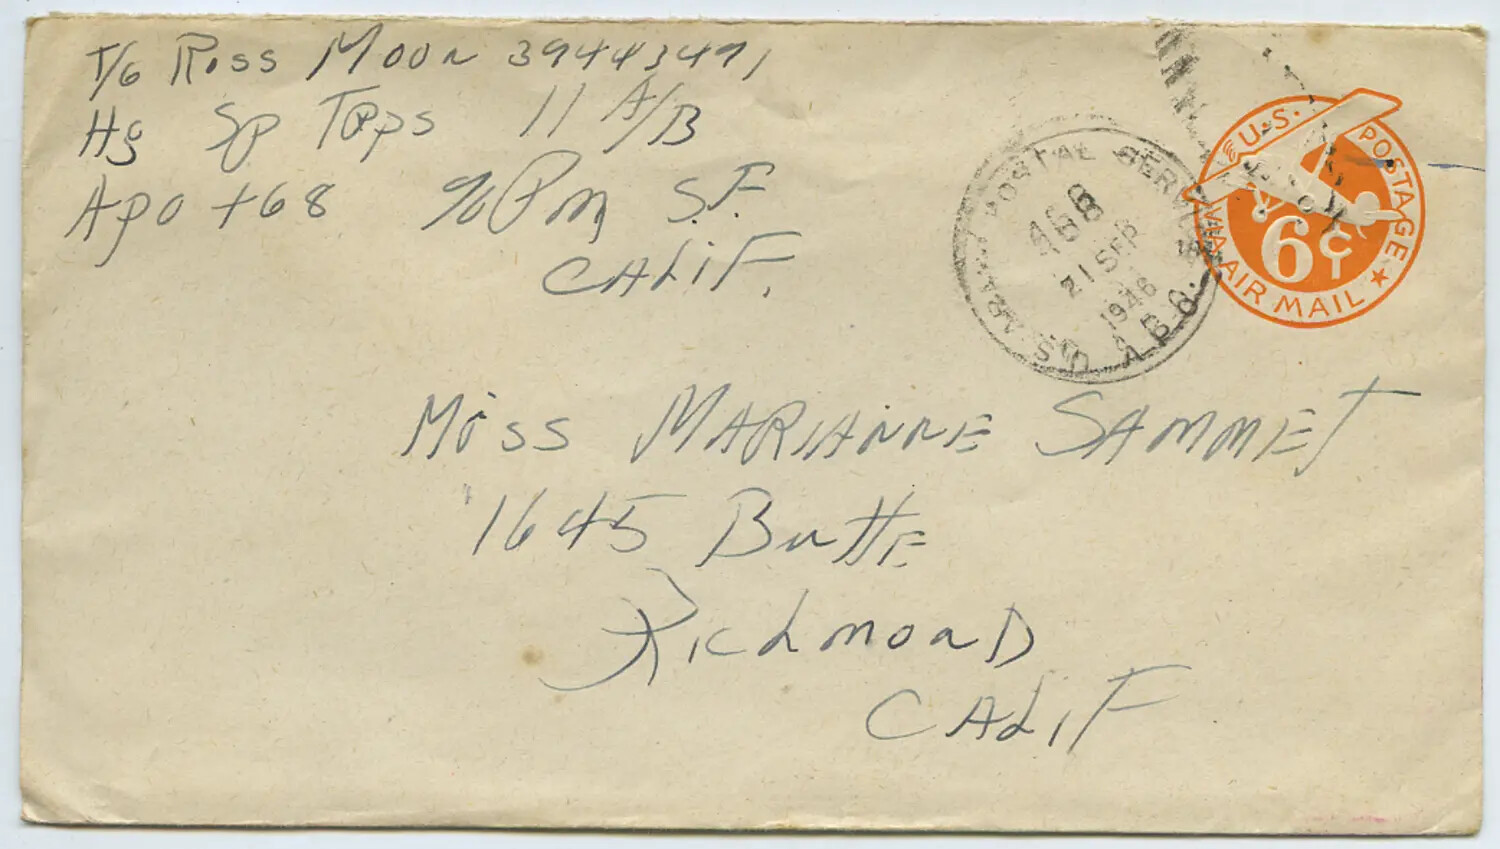 T/6 Ross Moon 39443491
Hg Sp Trps 11 A/B
Apo 468 % Pm S.F.
CALIF.
U.S. ARMY POSTAL SERVICE
468
21 SEP
1946
A.P.O.
U.S. POSTAGE
6¢
VIA AIR MAIL
Miss MARIANNE SAMMET
1645 Butte
Richmond
CALIF